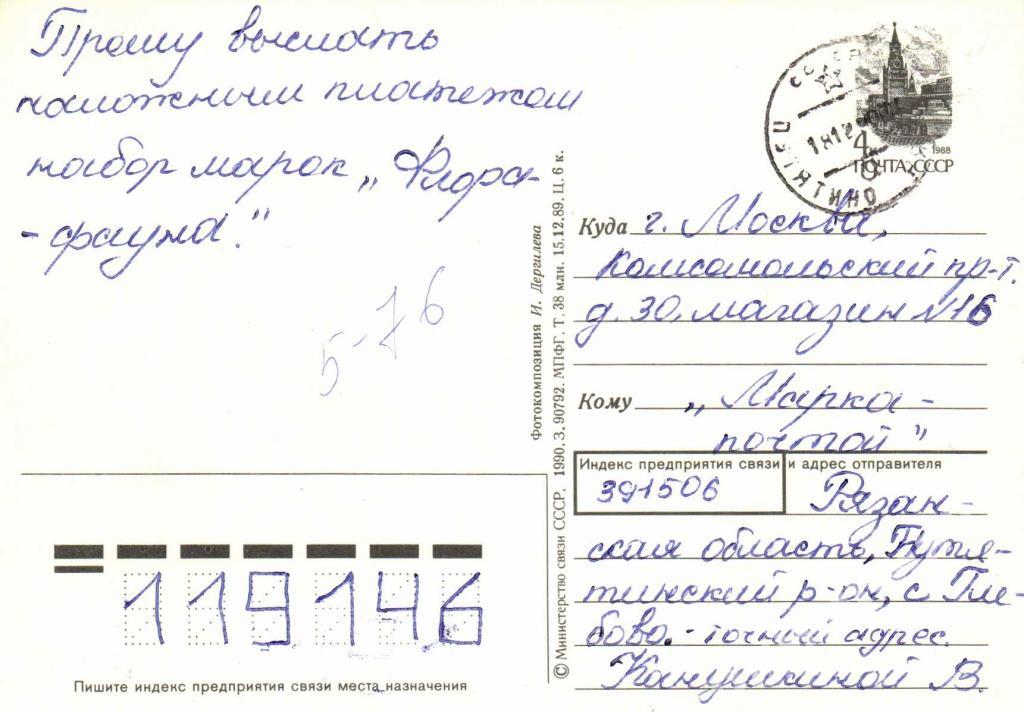 Прошу выслать
наложным платежом
набор марок „Флора-
-фауна."
5-76
1988
ПОЧТА СССР
1812
Куда г. Москва,
Комсомольский пр-т.
д. 30, магазин №16
Кому „Марка-
почтой"
Индекс предприятия связи и адрес отправителя
391506
Рязан-
ская область, Путя-
тинский р-он, с Гле-
бово - точный адрес.
Канушкиной В.
119146
Пишите индекс предприятия связи места назначения
© Министерство связи СССР, 1990. З. 90792. МПФГ. Т. 38 млн. 15.12.89. Ц. 6 к.
Фотокомпозиция И. Дергилева